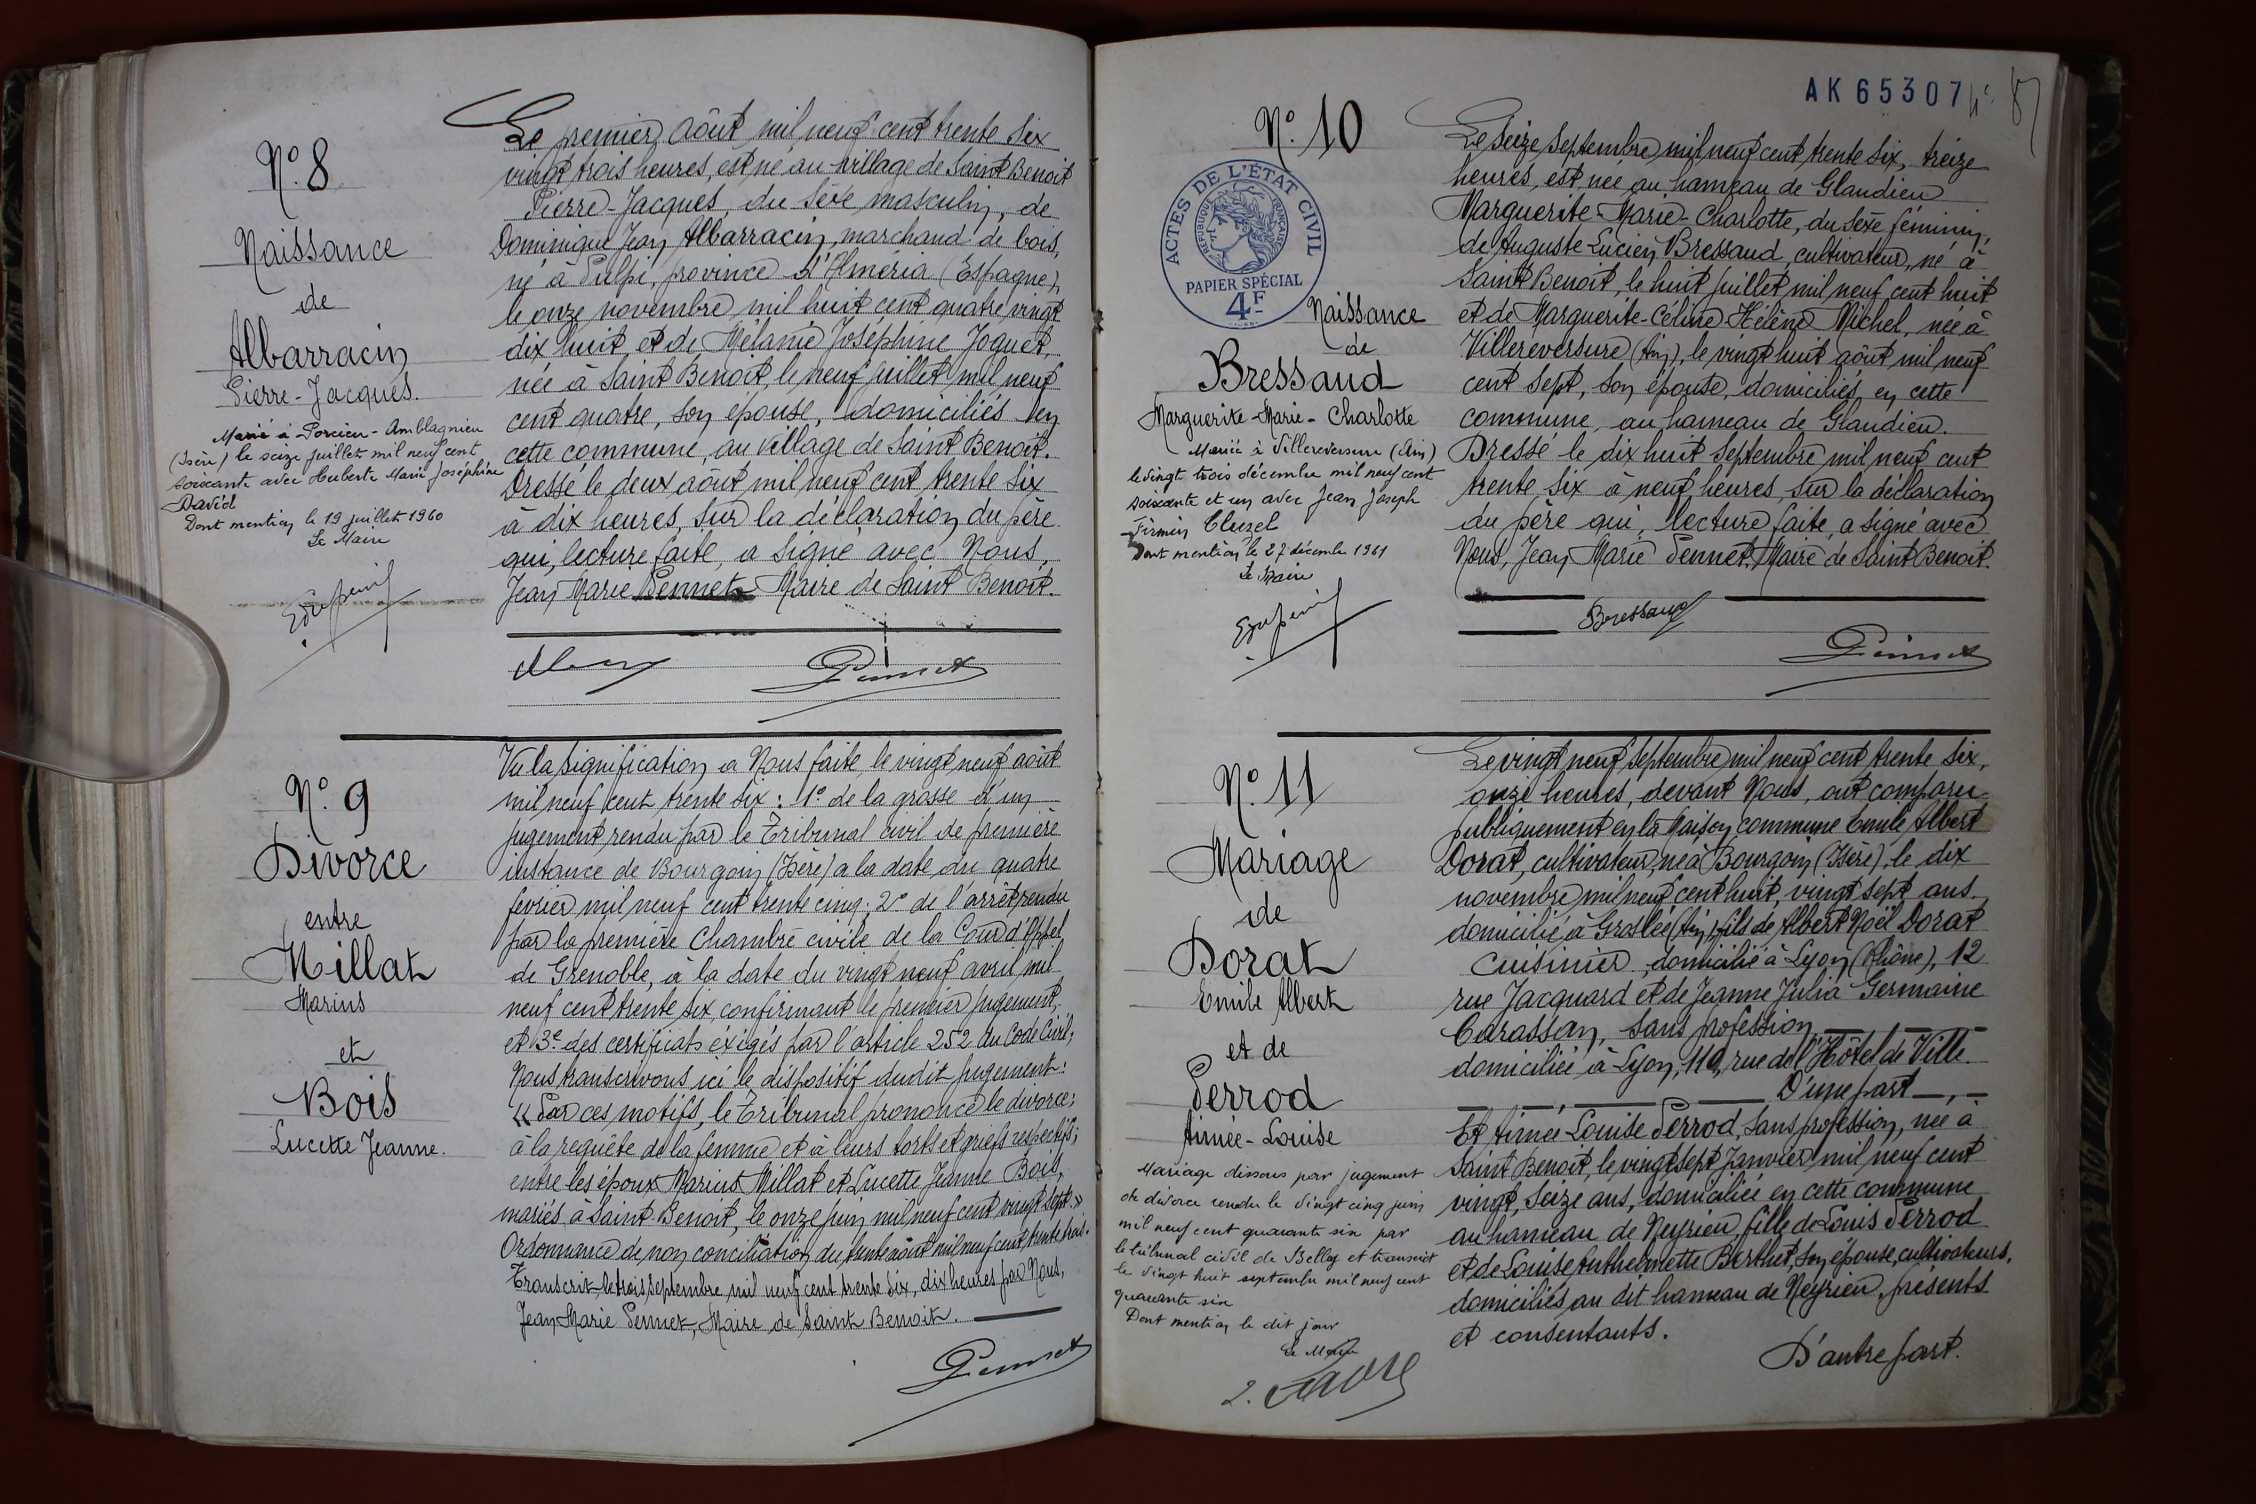 N° 8
Naissance
de
Albarracin
Pierre-Jacques.
Marié à Porcieu-Amblagnieu
(Isère) le seize juillet mil neuf cent
soixante avec Huberte Marie Joséphine
David
Dont mention le 19 juillet 1960
Le Maire
Le premier Août mil neuf cent trente six
vingt trois heures, est né au village de Saint Benoit
Pierre-Jacques, du sèxe masculin, de
Dominique Jean Albarracin, marchand de bois,
né à Pulpi, province d'Alméria (Espagne),
le onze novembre mil huit cent quatre vingt
dix huit et de Mélanie Joséphine Joguet,
née à Saint Benoit, le neuf juillet mil neuf
cent quatre, son épouse, domiciliés en
cette commune, au village de Saint Benoit.
Dressé le deux août mil neuf cent trente six
à dix heures, sur la déclaration du père
qui, lecture faite, a signé avec Nous,
Jean Marie Pennet Maire de Saint Benoit.
Pennet
N° 9
Divorce
entre
Millat
Marius
et
Bois
Lucette Jeanne.
Vu la signification a Nous faite le vingt neuf août
mil neuf cent trente six : 1° de la grosse d'un
jugement rendu par le Tribunal civil de première
instance de Bourgoin (Isère) a la date du quatre
février mil neuf cent trente cinq; 2° de l'arrêt rendu
par la première Chambre civile de la Cour d'Appel
de Grenoble, à la date du vingt neuf avril mil
neuf cent trente six, confirmant le premier jugement,
et 3° des certificats éxigés par l'article 252 du Code Civil;
Nous transcrivons ici le dispositif dudit jugement:
« Par ces motifs, le Tribunal prononce le divorce;
à la requête de la femme et à leurs torts et griefs respectifs;
entre les époux Marius Millat et Lucette Jeanne Bois,
mariés à Saint-Benoit, le onze juin mil neuf cent vingt sept.»
Ordonnance de non conciliation du trente août mil neuf cent trente trois.
Transcrit le trois septembre mil neuf cent trente six, dix heures par Nous,
Jean Marie Pennet, Maire de Saint Benoit.
Pennet
AK 65307
87
N° 10
ACTES DE L'ÉTAT CIVIL
RÉPUBLIQUE FRANÇAISE
PAPIER SPÉCIAL
4F
Naissance
de
Bressaud
Marguerite-Marie-Charlotte
Mariée à Villereversure (Ain)
le vingt trois décembre mil neuf cent
soixante et un avec Jean Joseph
Firmin Cluzel
Dont mention le 27 décembre 1961
Le Maire
Le seize septembre mil neuf cent trente six, treize
heures, est née au hameau de Glandieu
Marguerite-Marie-Charlotte, du sexe féminin,
de Auguste Lucien Bressaud, cultivateur, né à
Saint Benoit, le huit juillet mil neuf cent huit
et de Marguerite-Céline Hélène Michel, née à
Villereversure (Ain), le vingt huit août mil neuf
cent sept, son épouse, domiciliés en cette
commune, au hameau de Glandieu.
Dressé le dix huit septembre mil neuf cent
trente six à neuf heures, sur la déclaration
du père qui, lecture faite, a signé avec
Nous, Jean Marie Pennet, Maire de Saint Benoit.
Bressaud
Pennet
N° 11
Mariage
de
Dorat
Emile Albert
et de
Perrod
Aimée-Louise
Mariage dissous par jugement
de divorce rendu le vingt cinq juin
mil neuf cent quarante six par
le tribunal civil de Belley et transcrit
le vingt huit septembre mil neuf cent
quarante six
Dont mention le dit jour
Le Maire
Le vingt neuf septembre mil neuf cent trente six,
onze heures, devant Nous, ont comparu
publiquement en la Maison commune Emile Albert
Dorat, cultivateur, né à Bourgoin (Isère), le dix
novembre mil neuf cent huit, vingt sept ans,
domicilié à Groslée (Ain), fils de Albert Noël Dorat
cuisinier, domicilié à Lyon (Rhône), 12
rue Jacquard et de Jeanne Julia Germaine
Carassan, sans profession,
domiciliée à Lyon, 110, rue de l'Hôtel de Ville.
D'une part
Et Aimée Louise Perrod, sans profession, née à
Saint Benoit, le vingt sept Janvier mil neuf cent
vingt, seize ans, domiciliée en cette commune
au hameau de Neyrieu, fille de Louis Perrod
et de Louise Anthelmette Berthet, son épouse, cultivateurs,
domiciliés au dit hameau de Neyrieu, présents
et consentants.
D'autre part.